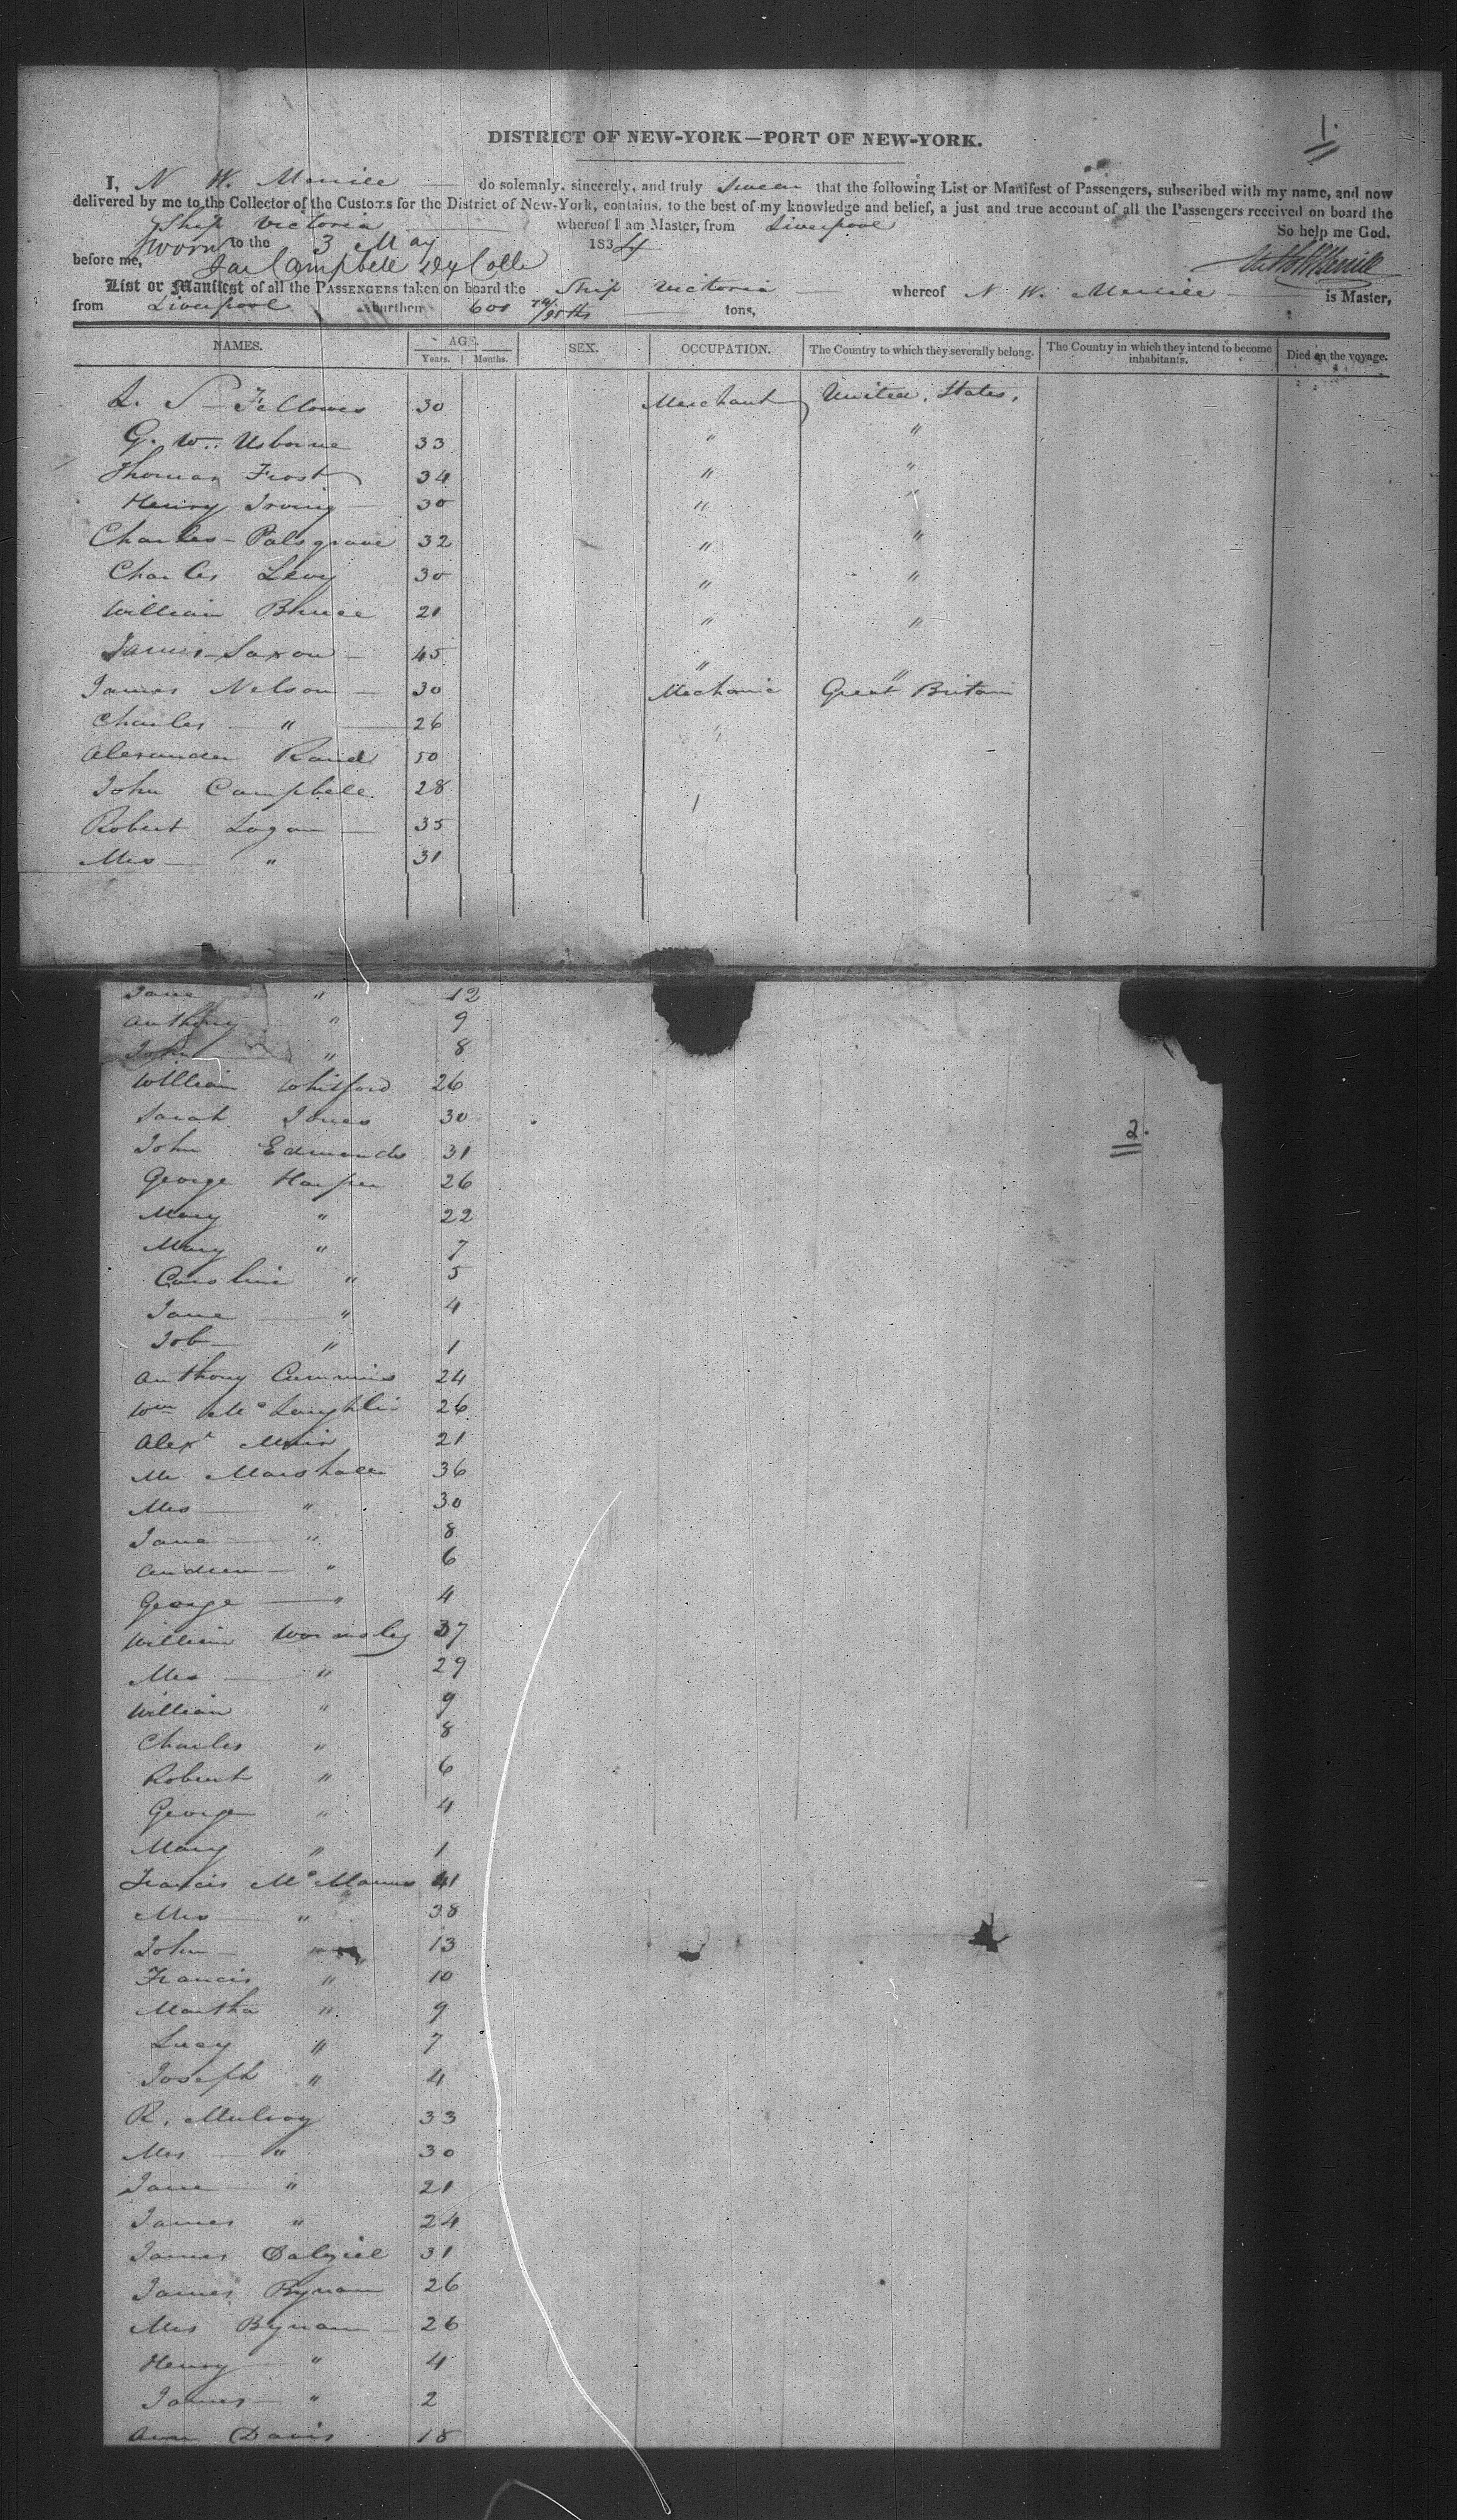 1.
DISTRICT OF NEW-YORK—PORT OF NEW-YORK.
I, N W. Merrill do solemnly, sincerely, and truly swear that the following List or Manifest of Passengers, subscribed with my name, and now
delivered by me to the Collector of the Customs for the District of New-York, contains, to the best of my knowledge and belief, a just and true account of all the Passengers received on board the
Ship Victoria whereof I am Master, from Liverpool
So help me God.
Sworn to the 3 May 1834
before me, Jas Campbell Dy Colle
List or Manifest of all the PASSENGERS taken on board the Ship Victoria whereof N W. Merrill is Master,
from Liverpool burthen 600 /95ths tons,
NAMES. AGE. Years. Months. SEX. OCCUPATION. The Country to which they severally belong. The Country in which they intend to become inhabitants. Died on the voyage.
L. S Fellows 30 Merchant United States,
G. W. Usborne 33 " "
Thomas Frost 34 " "
Henry Irving 30 " "
Charles Palsgrave 32 " "
Charles Levy 30 " "
William Bruce 21 " "
James Saxon 45 " "
James Nelson 30 Mechanic Great Britain
Charles " 26 "
Alexander 50
John Campbell 28
Robert Logan 35
Mrs " 31
Jane " 12
Anthony " 9
John " 8
William Whitford 26
Sarah Jones 30
2.
John Edmonds 31
George Harper 26
Mary " 22
Mary " 7
Caroline " 5
Jane " 4
Job " 1
Anthony Cummins 24
Wm McLaughlin 26
Alexr Muir 21
Mr Marshall 36
Mrs " 30
Jane " 8
Andrew " 6
George " 4
William Wormsley 37
Mrs " 29
William " 9
Charles " 8
Robert " 6
George " 4
Mary " 1
Francis McManus 41
Mrs " 38
John " 13
Francis " 10
Martha " 9
Lucy " 7
Joseph " 4
R. Mulroy 33
Mrs " 30
Jane " 21
James " 24
James Dalziel 31
James Bynam 26
Mrs Bynam 26
Henry " 4
James " 2
Ann Davis 18